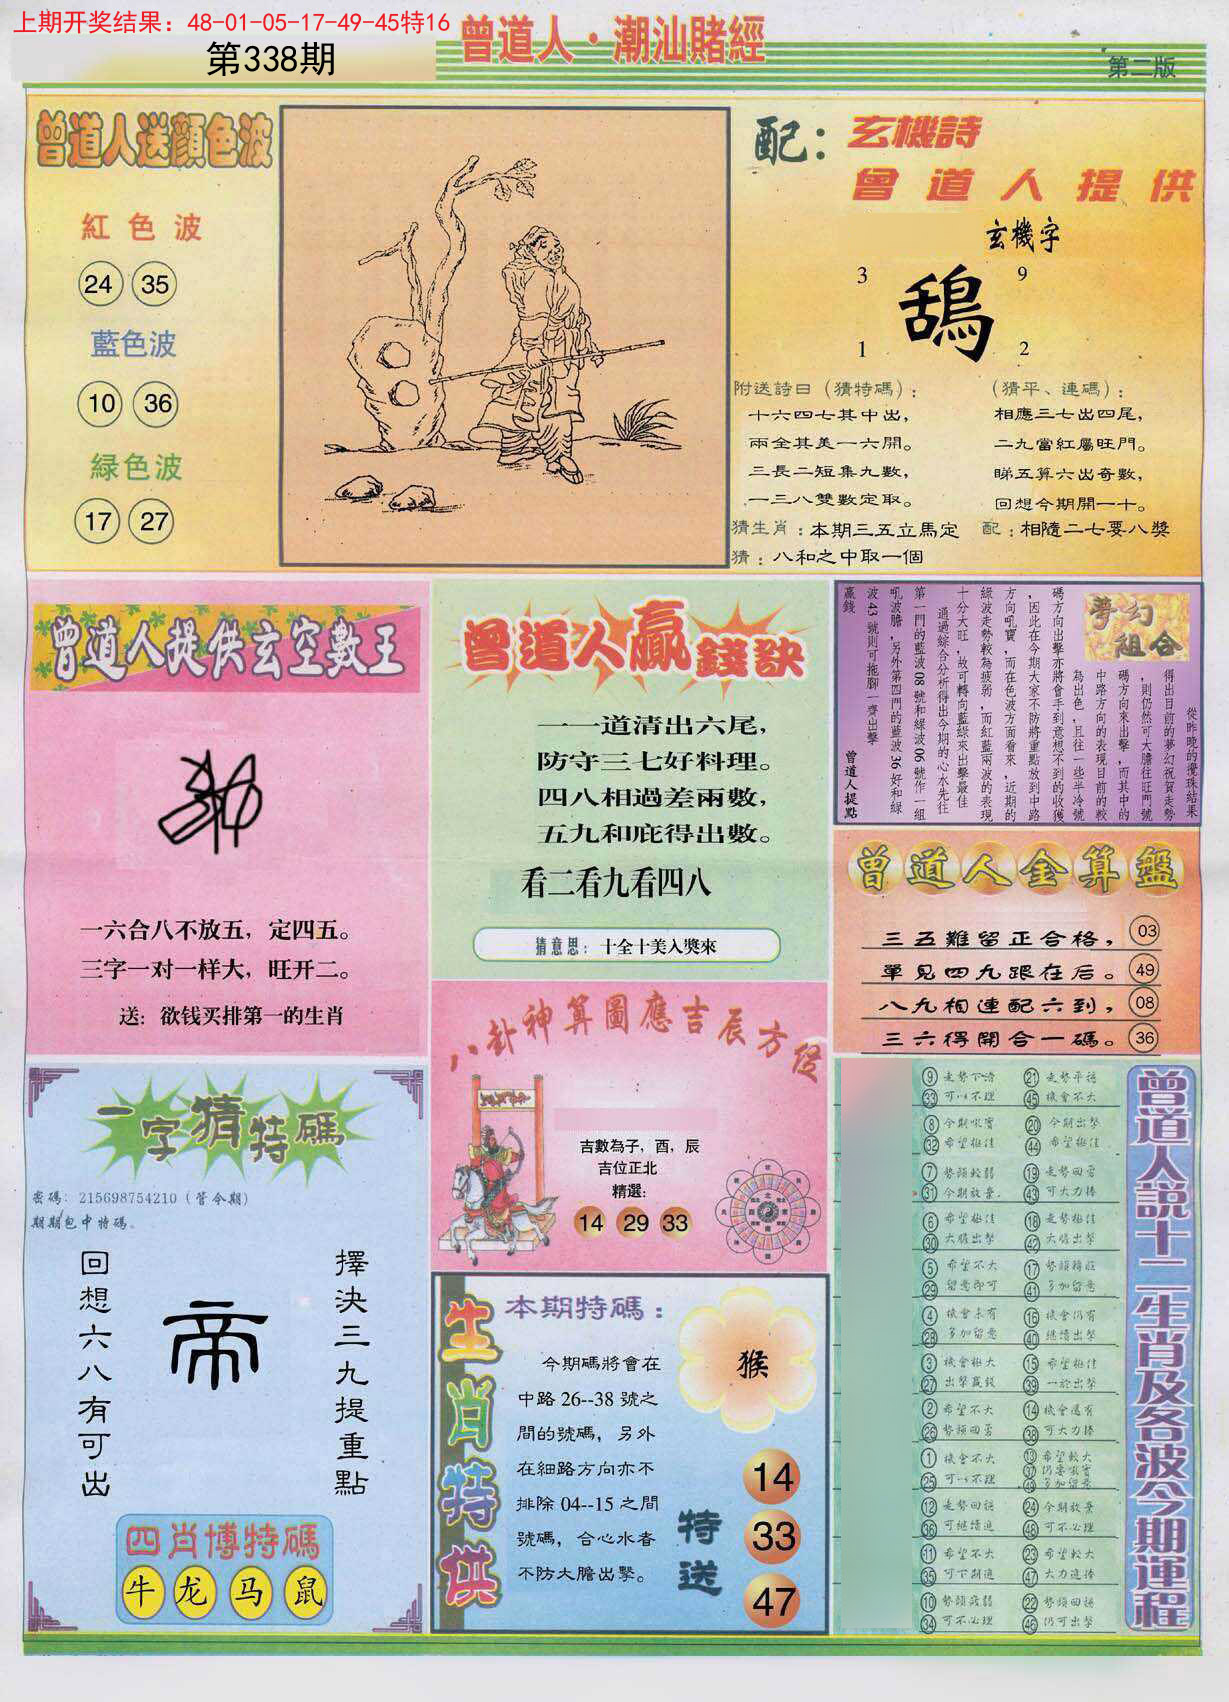 上期开奖结果：48-01-05-17-49-45特16
第338期
曾道人·潮汕賭經
第二版
曾道人送顏色波
紅色波
24 35
藍色波
10 36
緑色波
17 27
配：玄機詩
曾道人提供
玄機字
3 9
鴰
1 2
附送詩曰（猜特碼）：
十六四七其中出，
兩全其美一六開。
三長二短集九數，
一三八雙數定取。
（猜平、連碼）：
相應三七出四尾，
二九當紅屬旺門。
睇五算六出奇數，
回想今期開一十。
猜生肖：本期三五立馬定
配：相隨二七要八獎
猜：八和之中取一個
曾道人提供玄空數王
一六合八不放五，定四五。
三字一对一样大，旺开二。
送：欲钱买排第一的生肖
曾道人贏錢訣
一一道清出六尾，
防守三七好料理。
四八相過差兩數，
五九和庇得出數。
看二看九看四八
猜意思：十全十美入獎來
夢幻組合
從昨晚的攪珠結果
得出目前的夢幻祝賀走勢
，則仍然可大膽往旺門號
碼方向來出擊，而其中的
中路方向的表現目前的較
為出色，且往一些半冷號
碼方向出擊亦將會手到意想不到的收獲
，因此在今期大家不防將重點放到中路
方向吼寶，而在色波方面看來，近期的
綠波走勢較為疲弱，而紅藍兩波的表現
十分大旺，故可轉向藍綠來出擊最佳
通過綜合分析得出今期的心水先往
第一門的藍波08號和綠波06號作一組
吼波膽，另外第四門的藍波36好和綠
波43號則可拖腳一齊出擊
贏錢
曾道人提點
曾道人金算盤
三五難留正合格， 03
單見四九跟在后。 49
八九相連配六到， 08
三六得開合一碼。 36
八卦神算圖應吉辰方位
吉數為子，酉，辰
吉位正北
精選：
14 29 33
一字猜特碼
密碼：215698754210（管今期）
期期包中特碼。
擇決三九提重點
帝
回想六八有可出
四肖博特碼
牛 龙 马 鼠
生肖特供
本期特碼：
今期碼將會在
中路26--38號之
間的號碼，另外
在細路方向亦不
排除04--15之間
號碼，合心水者
不防大膽出擊。
猴
特送
14
33
47
曾道人説十二生肖及各波今期運程
⑨ 走勢下滑 ㉑ 走勢平穩
㉝ 可以不理 ㊺ 機會不大
⑧ 今期吼寶 ⑳ 今期出擊
㉜ 希望極佳 ㊹ 希望極佳
⑦ 勢頭較弱 ⑲ 走勢回勇
㉛ 今期放棄 ㊸ 可大力捧
⑥ 希望極佳 ⑱ 走勢極佳
㉚ 大膽出擊 ㊷ 大膽出擊
⑤ 希望不大 ⑰ 勢頭轉旺
㉙ 留意即可 ㊶ 多加留意
④ 機會未有 ⑯ 機會仍有
㉘ 多加留意 ㊵ 繼續出擊
③ 機會極大 ⑮ 希望極佳
㉗ 出擊贏錢 ㊴ 一於出擊
② 希望不大 ⑭ 機會還有
㉖ 勢頭回勇 ㊳ 可大力捧
① 機會不大 ⑬ 希望較大
㉕ 可以不理 ㊲ 仍要吼實
㊾ 多加留意
⑫ 走勢回穩 ㉔ 今期放棄
㊱ 可繼續追 ㊽ 可不必理
⑪ 希望不大 ㉓ 希望較大
㉟ 可下期追 ㊼ 大力追捧
⑩ 勢頭疲弱 ㉒ 勢頭回穩
㉞ 可不必理 ㊻ 仍可出擊